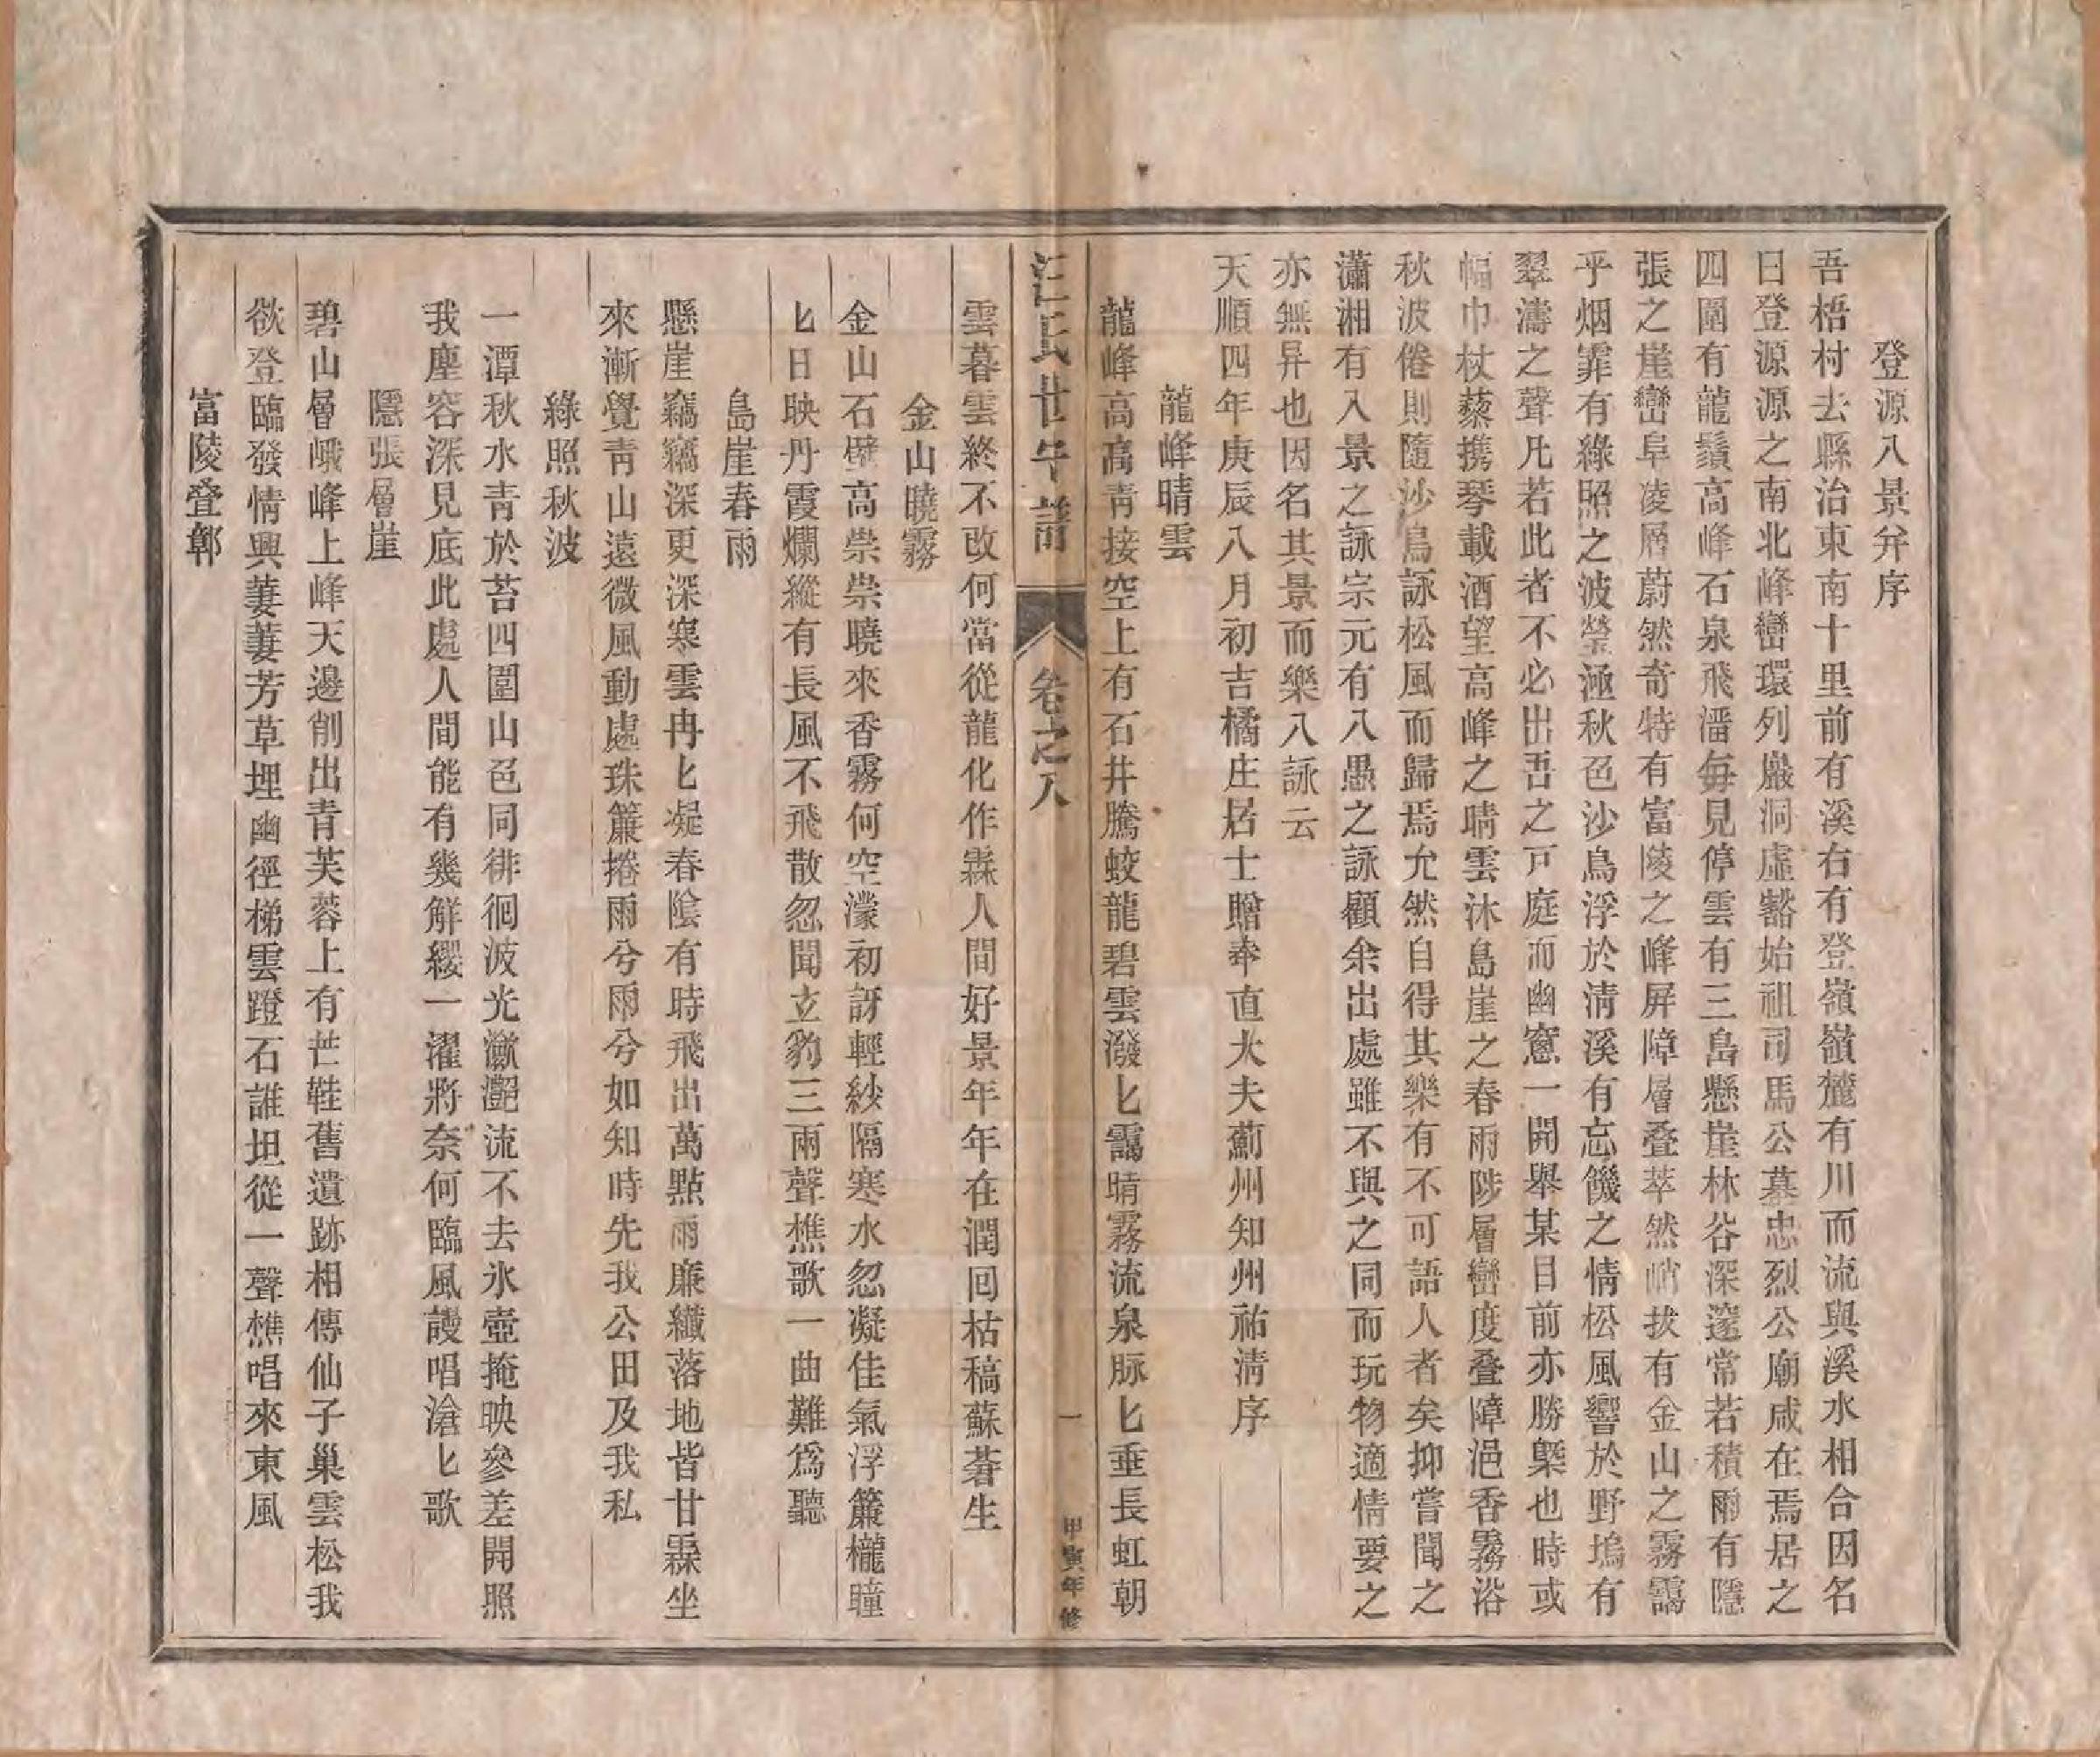 登源八景弁序
吾梧村去縣治東南十里前有溪右有登嶺嶺麓有川而流與溪水相合因名
曰登源源之南北峰巒環列巖洞虛豁始祖司馬公墓忠烈公廟咸在焉居之
四圍有龍鬚高峰石泉飛潘每見停雲有三島懸崖林谷深邃常若積雨有隱
張之崖巒阜凌層蔚然奇特有富陵之峰屏障層叠萃然峭拔有金山之霧靄
乎烟霏有綠照之波瑩涵秋色沙鳥浮於清溪有忘饑之情松風響於野塢有
翠濤之聲凡若此者不必出吾之戸庭而幽窻一開舉某目前亦勝槩也時或
幅巾杖藜携琴載酒望高峰之晴雲沐島崖之春雨陟層巒度叠障浥香霧浴
秋波倦則隨沙鳥詠松風而歸焉允然自得其樂有不可語人者矣抑嘗聞之
瀟湘有入景之詠宗元有八愚之詠顧余出處雖不與之同而玩物適情要之
亦無异也因名其景而樂八詠云
天順四年庚辰八月初吉橘庄居士贈奉直大夫薊州知州祐淸序
龍峰晴雲
龍峰高高靑接空上有石井騰蛟龍碧雲潑匕靄晴霧流泉脉匕垂長虹朝
汪氏世守譜
卷之八
一
甲寅年修
雲暮雲終不改何當從龍化作霖人間好景年年在潤回枯稿蘇蒼生
金山曉霧
金山石壁高崇崇曉來香霧何空濛初訝輕紗隔寒水忽凝佳氣浮簾櫳曈
匕日映丹霞爛縱有長風不飛散忽聞立豹三兩聲樵歌一曲難爲聽
島崖春雨
懸崖竊竊深更深寒雲冉匕凝春陰有時飛出萬點雨廉纖落地皆甘霖坐
來漸覺靑山遠微風動處珠簾捲雨兮雨兮如知時先我公田及我私
綠照秋波
一潭秋水靑於苔四圍山色同徘徊波光瀲灔流不去氷壺掩映參差開照
我塵容深見底此處人間能有幾觧纓一濯將奈何臨風謾唱滄匕歌
隱張層崖
碧山層峨峰上峰天邊削出青芙蓉上有芒鞋舊遺跡相傳仙子巢雲松我
欲登臨發情興萋萋芳草埋幽徑梯雲蹬石誰坦從一聲樵唱來東風
富陵叠鄣